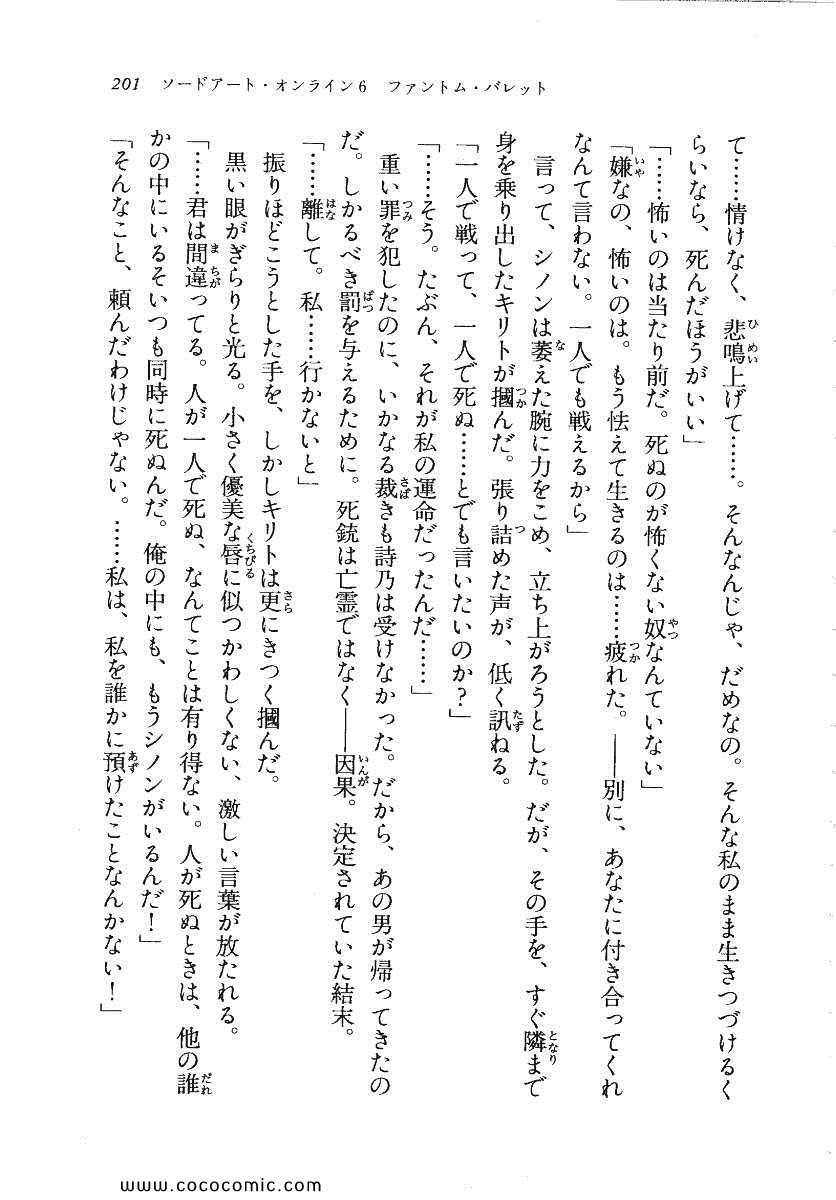 201　ソードアート・オンライン6　ファントム・バレット
て……情けなく、悲鳴上げて……。そんなんじゃ、だめなの。そんな私のまま生きつづけるく
らいなら、死んだほうがいい」
「……怖いのは当たり前だ。死ぬのが怖くない奴なんていない」
「嫌なの、怖いのは。もう怯えて生きるのは……疲れた。――別に、あなたに付き合ってくれ
なんて言わない。一人でも戦えるから」
言って、シノンは萎えた腕に力をこめ、立ち上がろうとした。だが、その手を、すぐ隣まで
身を乗り出したキリトが摑んだ。張り詰めた声が、低く訊ねる。
「一人で戦って、一人で死ぬ……とでも言いたいのか?」
「……そう。たぶん、それが私の運命だったんだ……」
重い罪を犯したのに、いかなる裁きも詩乃は受けなかった。だから、あの男が帰ってきたの
だ。しかるべき罰を与えるために。死銃は亡霊ではなく――因果。決定されていた結末。
「……離して。私……行かないと」
振りほどこうとした手を、しかしキリトは更にきつく摑んだ。
黒い眼がぎらりと光る。小さく優美な唇に似つかわしくない、激しい言葉が放たれる。
「……君は間違ってる。人が一人で死ぬ、なんてことは有り得ない。人が死ぬときは、他の誰
かの中にいるそいつも同時に死ぬんだ。俺の中にも、もうシノンがいるんだ!」
「そんなこと、頼んだわけじゃない。……私は、私を誰かに預けたことなんかない!」
www.cococomic.com/